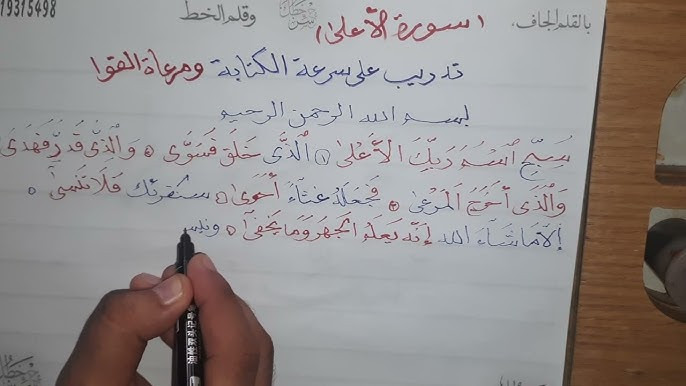 19315498
بالقلم الجاف، وقلم الخط
(سورة الأعلى)
تدريب على سرعة الكتابة ومرعاة القوا
بسم الله الرحمن الرحيم
سَبِّحِ ٱسْمَ رَبِّكَ الأَعْلَى ١ الَّذِي خَلَقَ فَسَوَّى ٥ وَالَّذِي قَدَّرَ فَهَدَى
وَالَّذِي أَخْرَجَ الْمَرْعَى ٥ فَجَعَلَهُ غُثَاءً أَحْوَى ٥ سنقرئك فَلَا تَنسَى ٥
إلَّا مَا شَاءَ الله إنَّه يَعلَمُ الْجَهْرَ وَمَا يَخْفَى ٥ ونيس